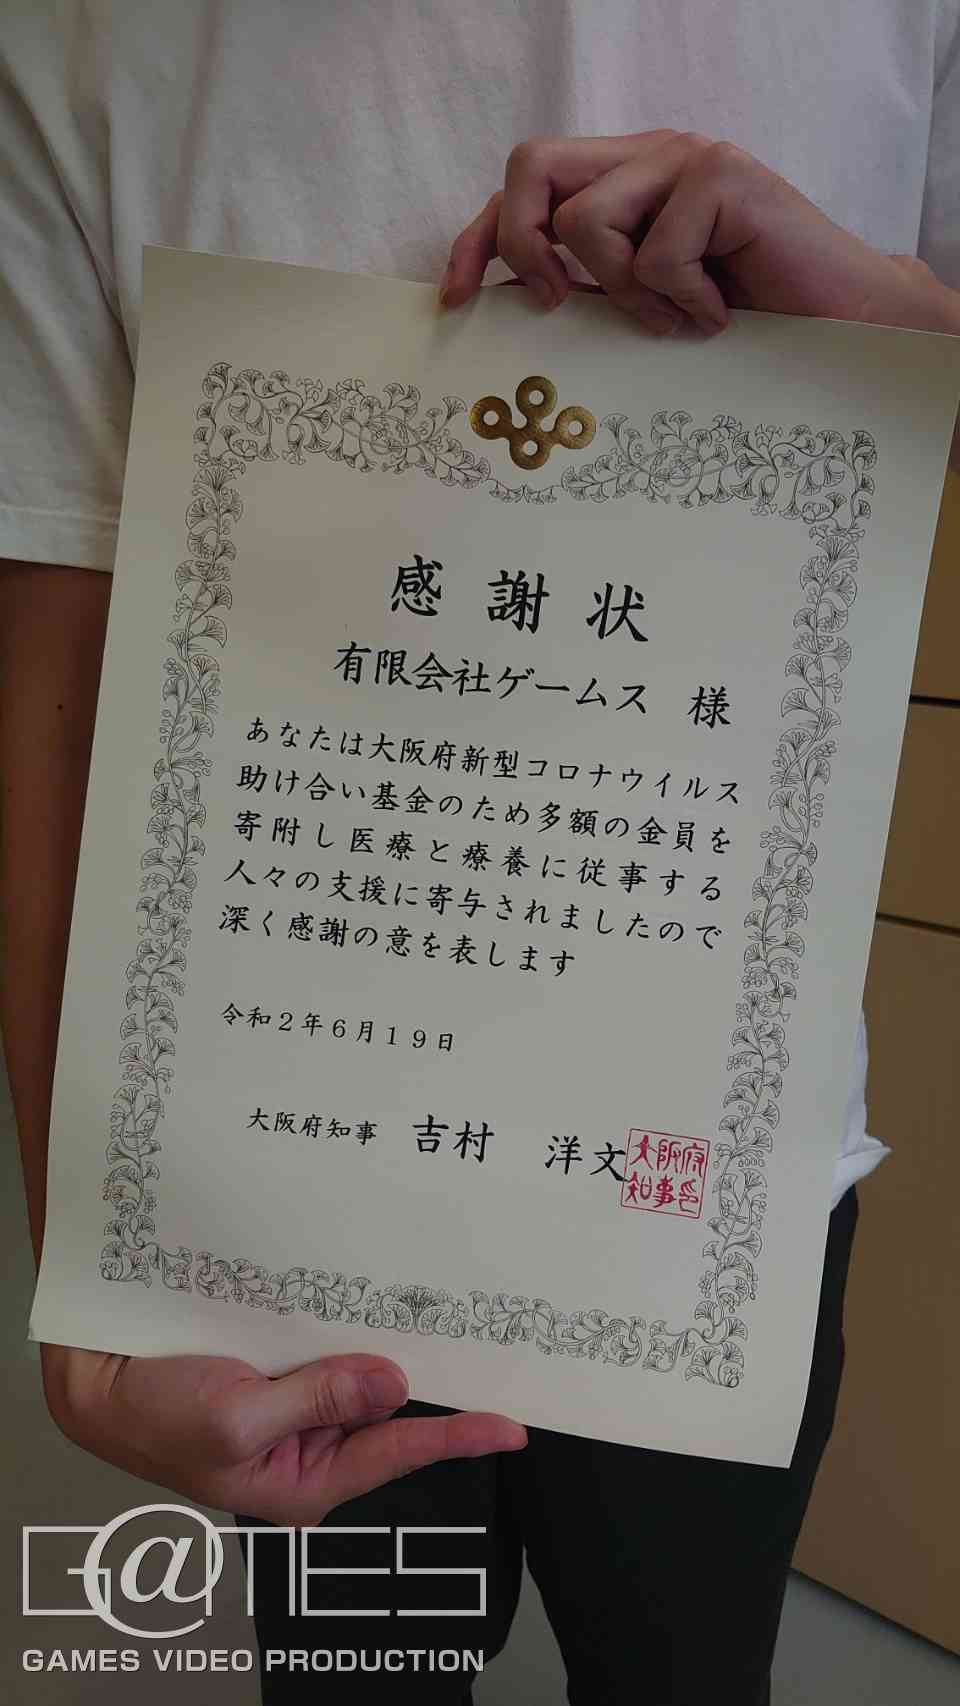 感謝状
有限会社ゲームス 様
あなたは大阪府新型コロナウイルス
助け合い基金のため多額の金員を
寄附し医療と療養に従事する
人々の支援に寄与されましたので
深く感謝の意を表します
令和2年6月19日
大阪府知事 吉村 洋文
大阪府
知事印
G@MES
GAMES VIDEO PRODUCTION